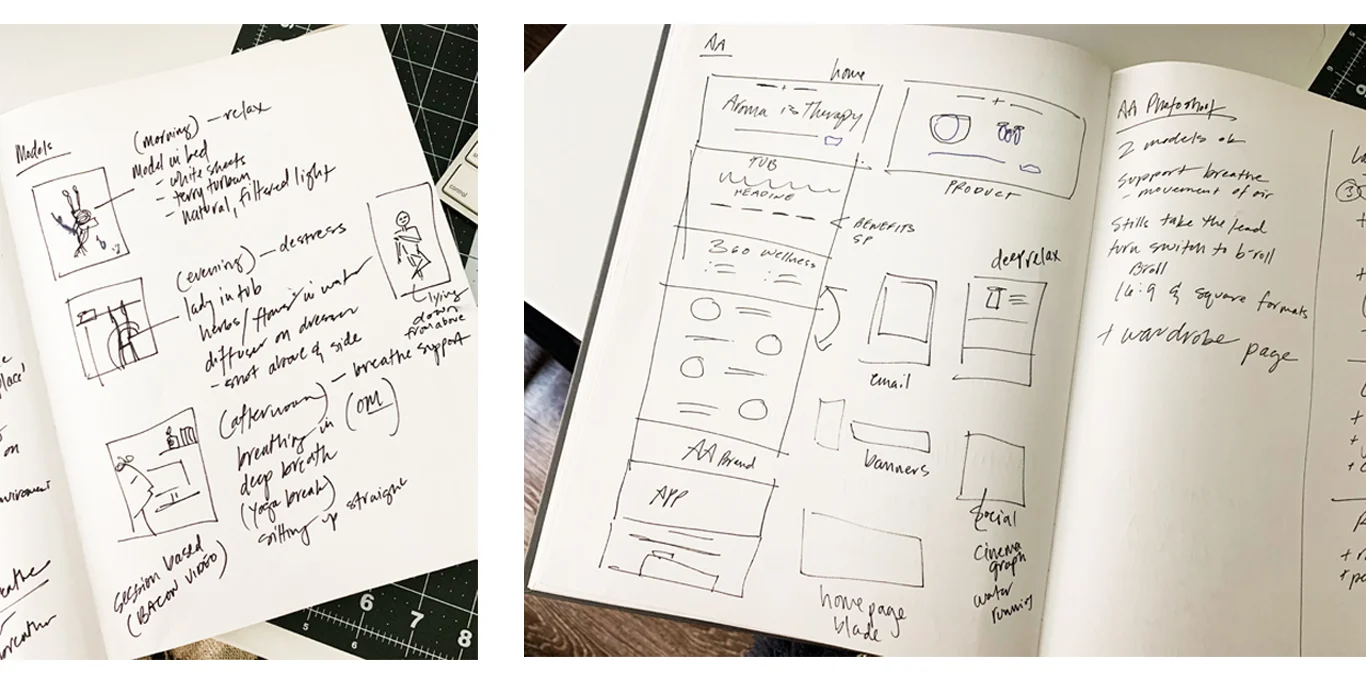 Models
(morning) — relax
Model in bed
- white sheets
- terry turban
- natural, filtered light
(evening) — destress
lady in tub
herbs/ in water
diffuser on dresser
- shot above & side
lying
down
from above
(afternoon) — breathe support
breathing in (OM)
deep breath
(Yoga break)
sitting up straight
session based
(BACON VIDEO)
place'
on
AA
home
Aroma is Therapy
TUB
HEADING
BENEFITS
SP
360 wellness
AA Brand
APP
PRODUCT
deep relax
email
banners
Social
Cinema
graph
water
running
home page
blade
AA Photoshoot
2 models ok
Support breathe
- movement of air
Stills take the lead
turn switch to b-roll
Broll
16:9 & square formats
+ wardrobe page
3
control
6
7
8
5
6
6